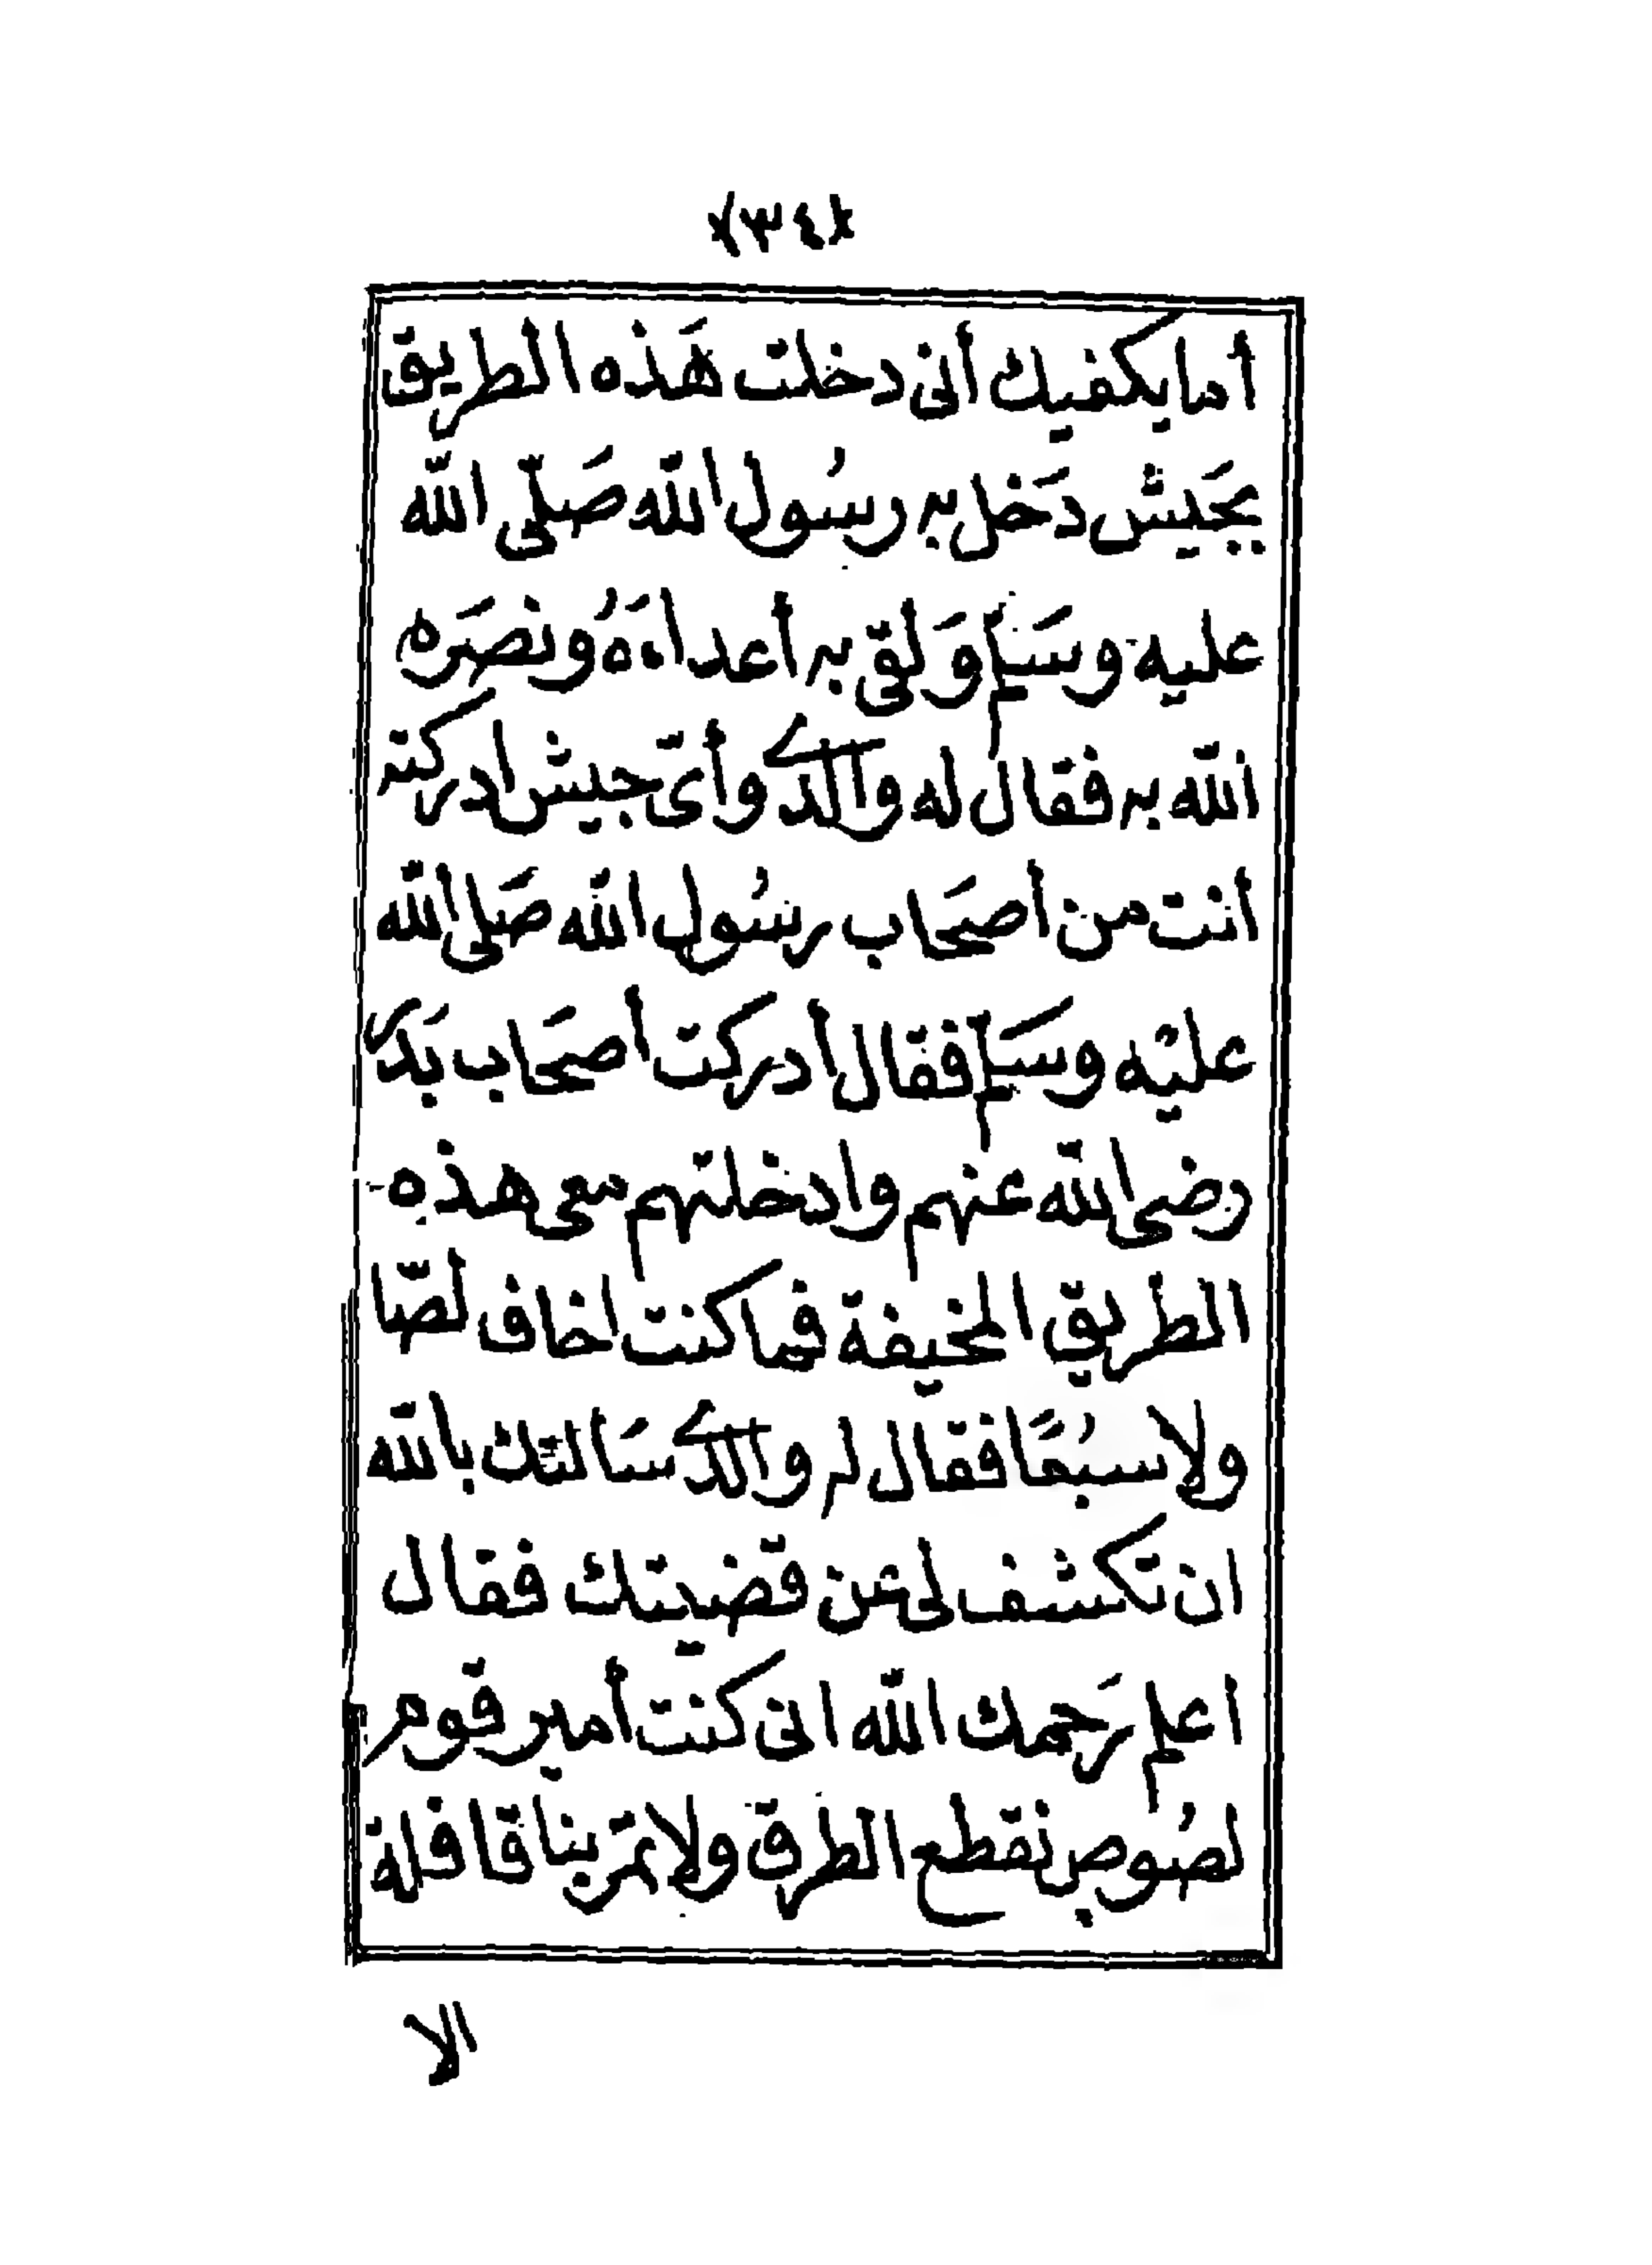 ﴿٣٤﴾
أما يكفيك أنى دخلت هَذه الطريق
بجَيش دَخل به رسُول الله صَلّى الله
عليه وسَلم وَلقى به أعداءَهُ ونصَره
الله به فقال له والدى وأىّ جيش ادركته
أنت من أصحَاب رسُول الله صَلى الله
عليْه وسَلم فقال أدركت أصحَاب بَدر
رضى الله عنهم وادخلتهم معى هذه
الطريق المخيفة فما كنت اخاف لصّا
ولا سبُعًا فقال له والدى سَالتك بالله
ان تكشف لى عن قضيتك فقال
اعلم رَحمك الله انى كنت أمير قوم
لصُوص نقطع الطرق ولا تمرّ بنا قافلة
الا